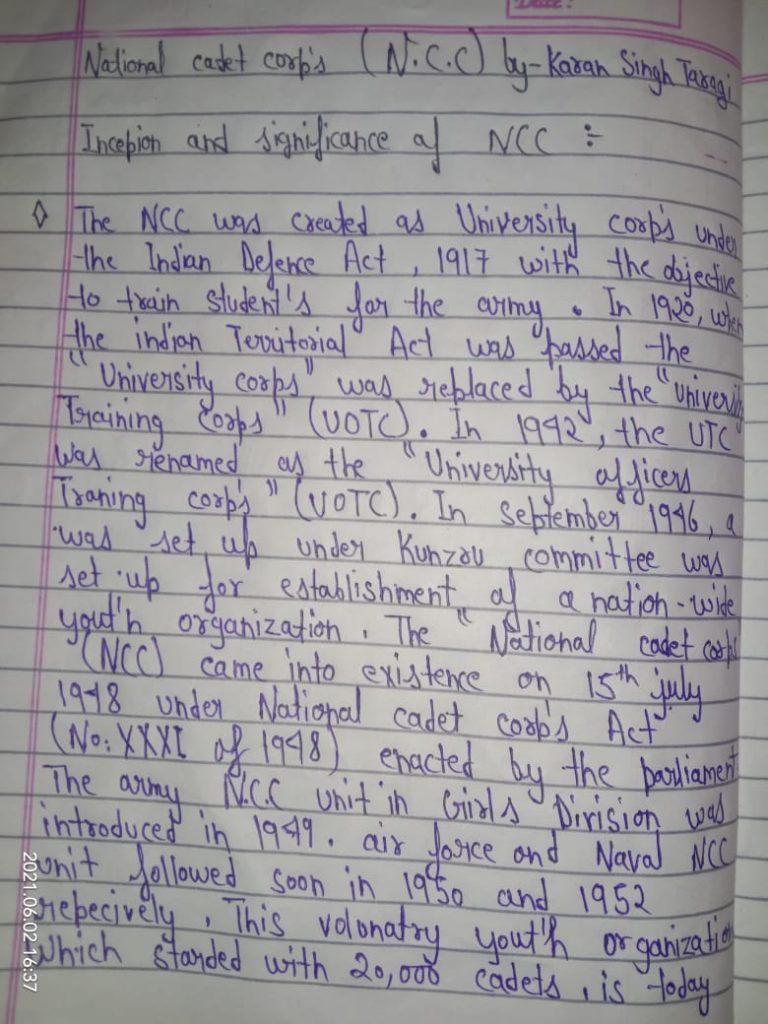 Date:
National cadet corp's (N.C.C) by-Karan Singh Taragi
Incepion and significance of NCC ÷
◊ The NCC was created as University corp's under
the Indian Defence Act, 1917 with the objective
to train student's for the army. In 1920, when
the indian Territorial Act was passed the
"University corps" was replaced by the "Universit
Training Corps" (UOTC). In 1942, the UTC
was renamed as the "University officers
Traning corp's" (UOTC). In September 1946, a
was set up under Kunzru committee was
set up for establishment of a nation-wide
yout'h organization. The "National cadet corps
(NCC) came into existence on 15th july
1948 under National cadet corp's Act
(No: XXXI of 1948) enacted by the parliament
The army N.C.C unit in Girls Division was
introduced in 1949. air force and Naval NCC
unit followed soon in 1950 and 1952
repecively. This volonatry yout'h organizatio
which starded with 20,000 cadets, is today
2021.06.02 16:37